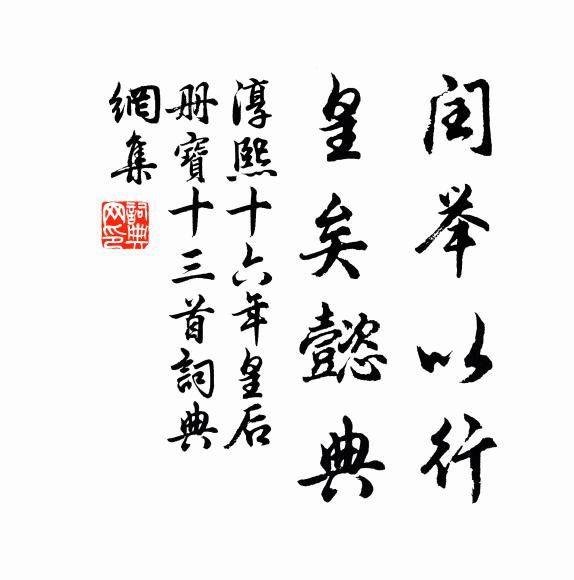 闰举以行
皇矣懿典
淳熙十六年皇后
册寶十三首詞典
網集
詞典
网印